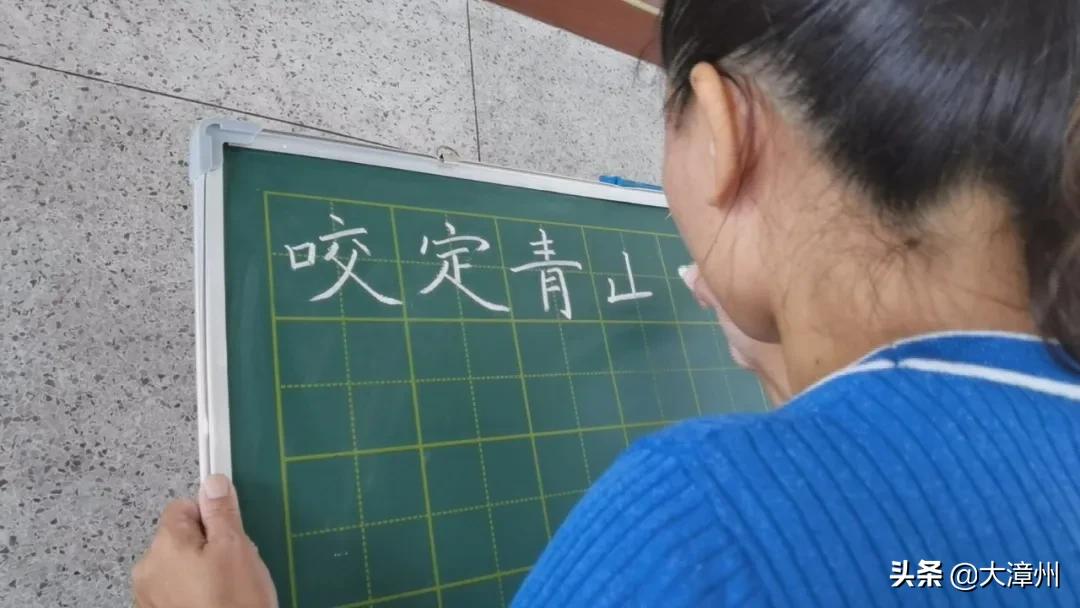 咬定青山
头条 @大漳州